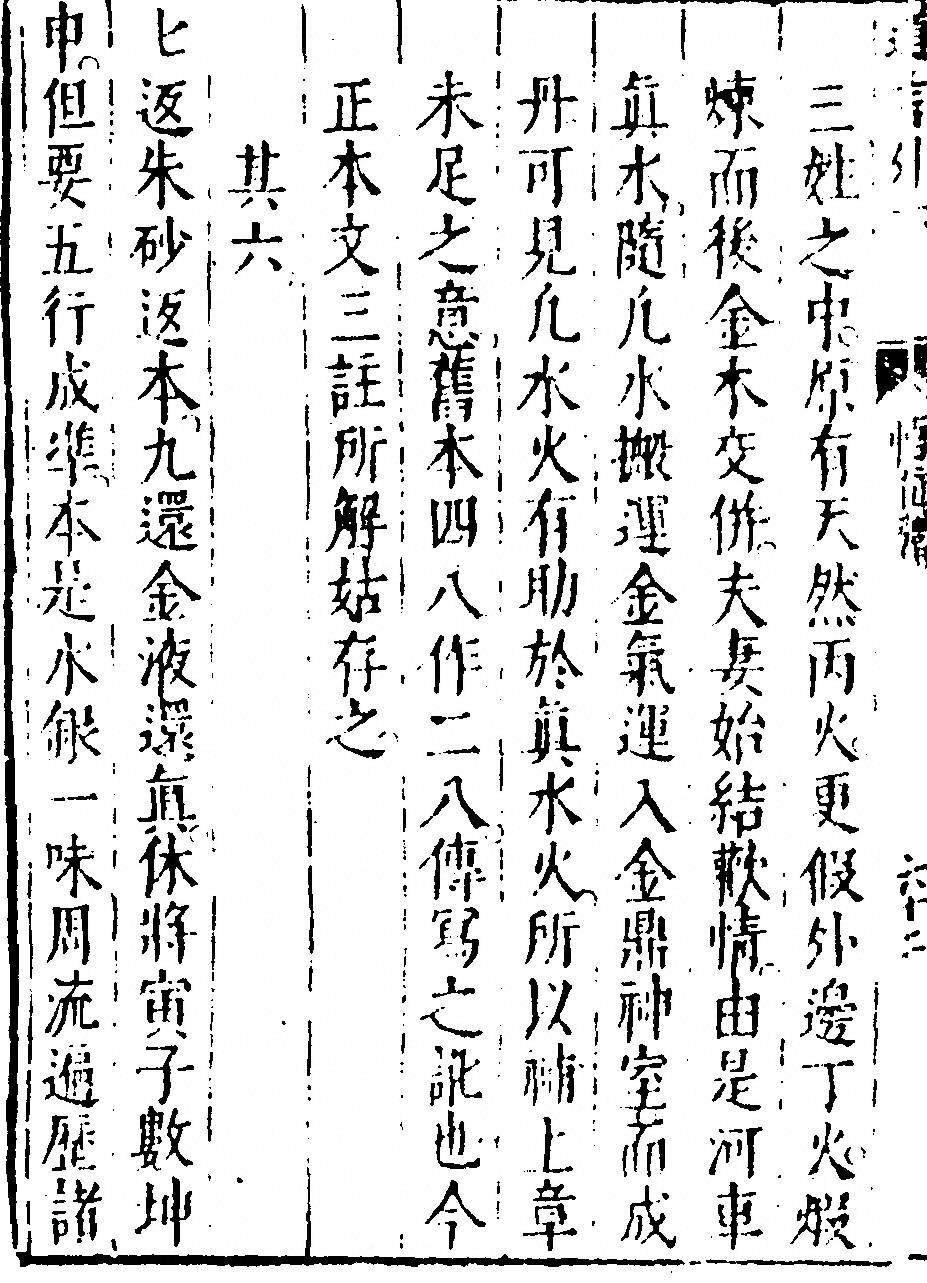 三姓之中原有天然丙火更假外邊丁火煅
煉而後金木交併夫妻始結歡情由是河車
眞水隨凡水搬運金氣運入金鼎神室而成
丹可見凡水火有助於眞水火所以補上章
未足之意舊本四八作二八傳寫之訛也今
正本文三註所解姑存之
其六
七返朱砂返本九還金液還眞休將寅子數坤
申但要五行成準本是水銀一味周流遍歷諸